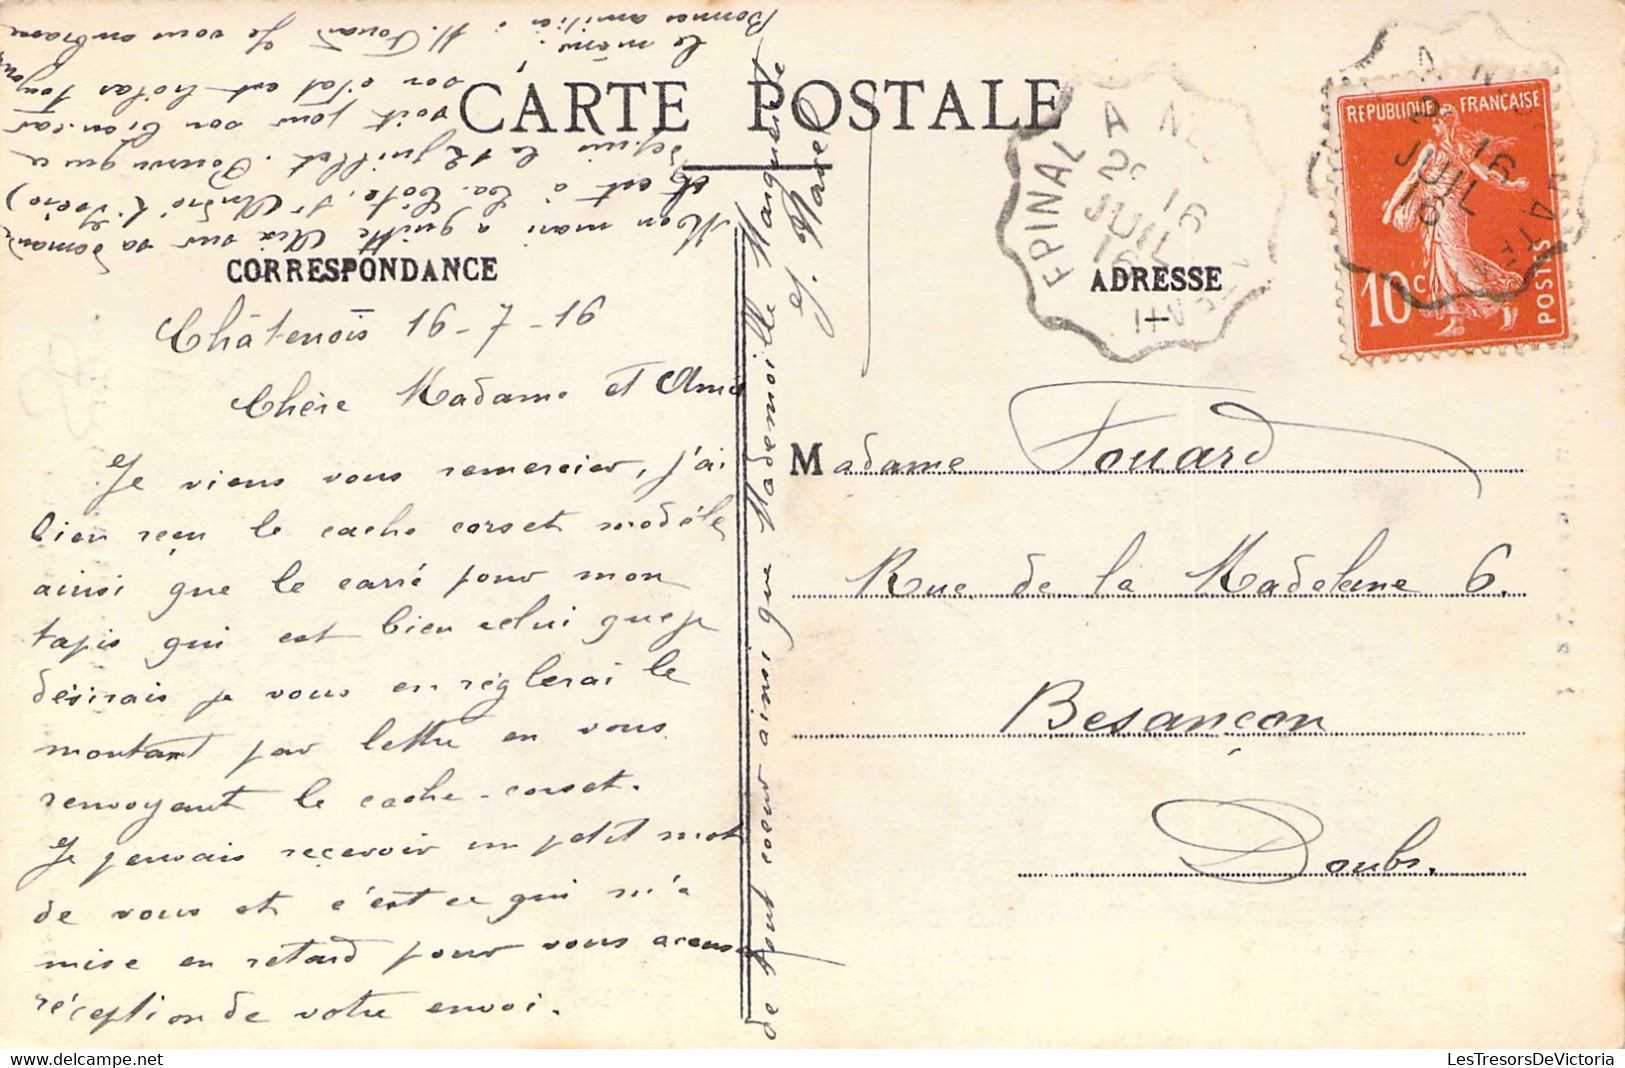 CARTE POSTALE
CORRESPONDANCE
ADRESSE
REPUBLIQUE FRANÇAISE
10 C
POSTES
EPINAL A
2E 16
JUIL
16
Châtenois 16-7-16
Chère Madame et Amie
Je viens vous remercier, j'ai
bien reçu le cache corset modèle
ainsi que le carré pour mon
tapis qui est bien celui que je
désirais je vous en réglerai le
montant par lettre en vous
renvoyant le cache-corset.
Je pensais recevoir un petit mot
de vous et c'est ce qui m'a
mise en retard pour vous accuser
réception de votre envoi.
Mon mari a quitté Aix sur sa demande
et est à La Côte, St André (Isère)
depuis le 12 juillet. Pourvu que ce
soit pour son bien car
son état est hélas toujours
le même!
Bonnes amitiés à M. Fouard Je vous embrasse
de tout coeur ainsi que Mademoiselle Marguerite
Madame Fouard
Rue de la Madeleine 6.
Besançon
Doubs.
LesTresorsDeVictoria